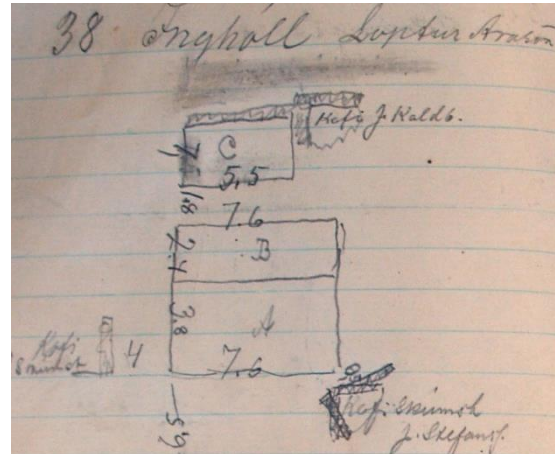 38 Inghóll Loptur Arason
Kofi J. Kaldb.
C
7,1
5,5
1,8
7.6
2.4
B
3,8
A
Kofi
4
7.6
Kofi Skúmst
J. Stefanss.